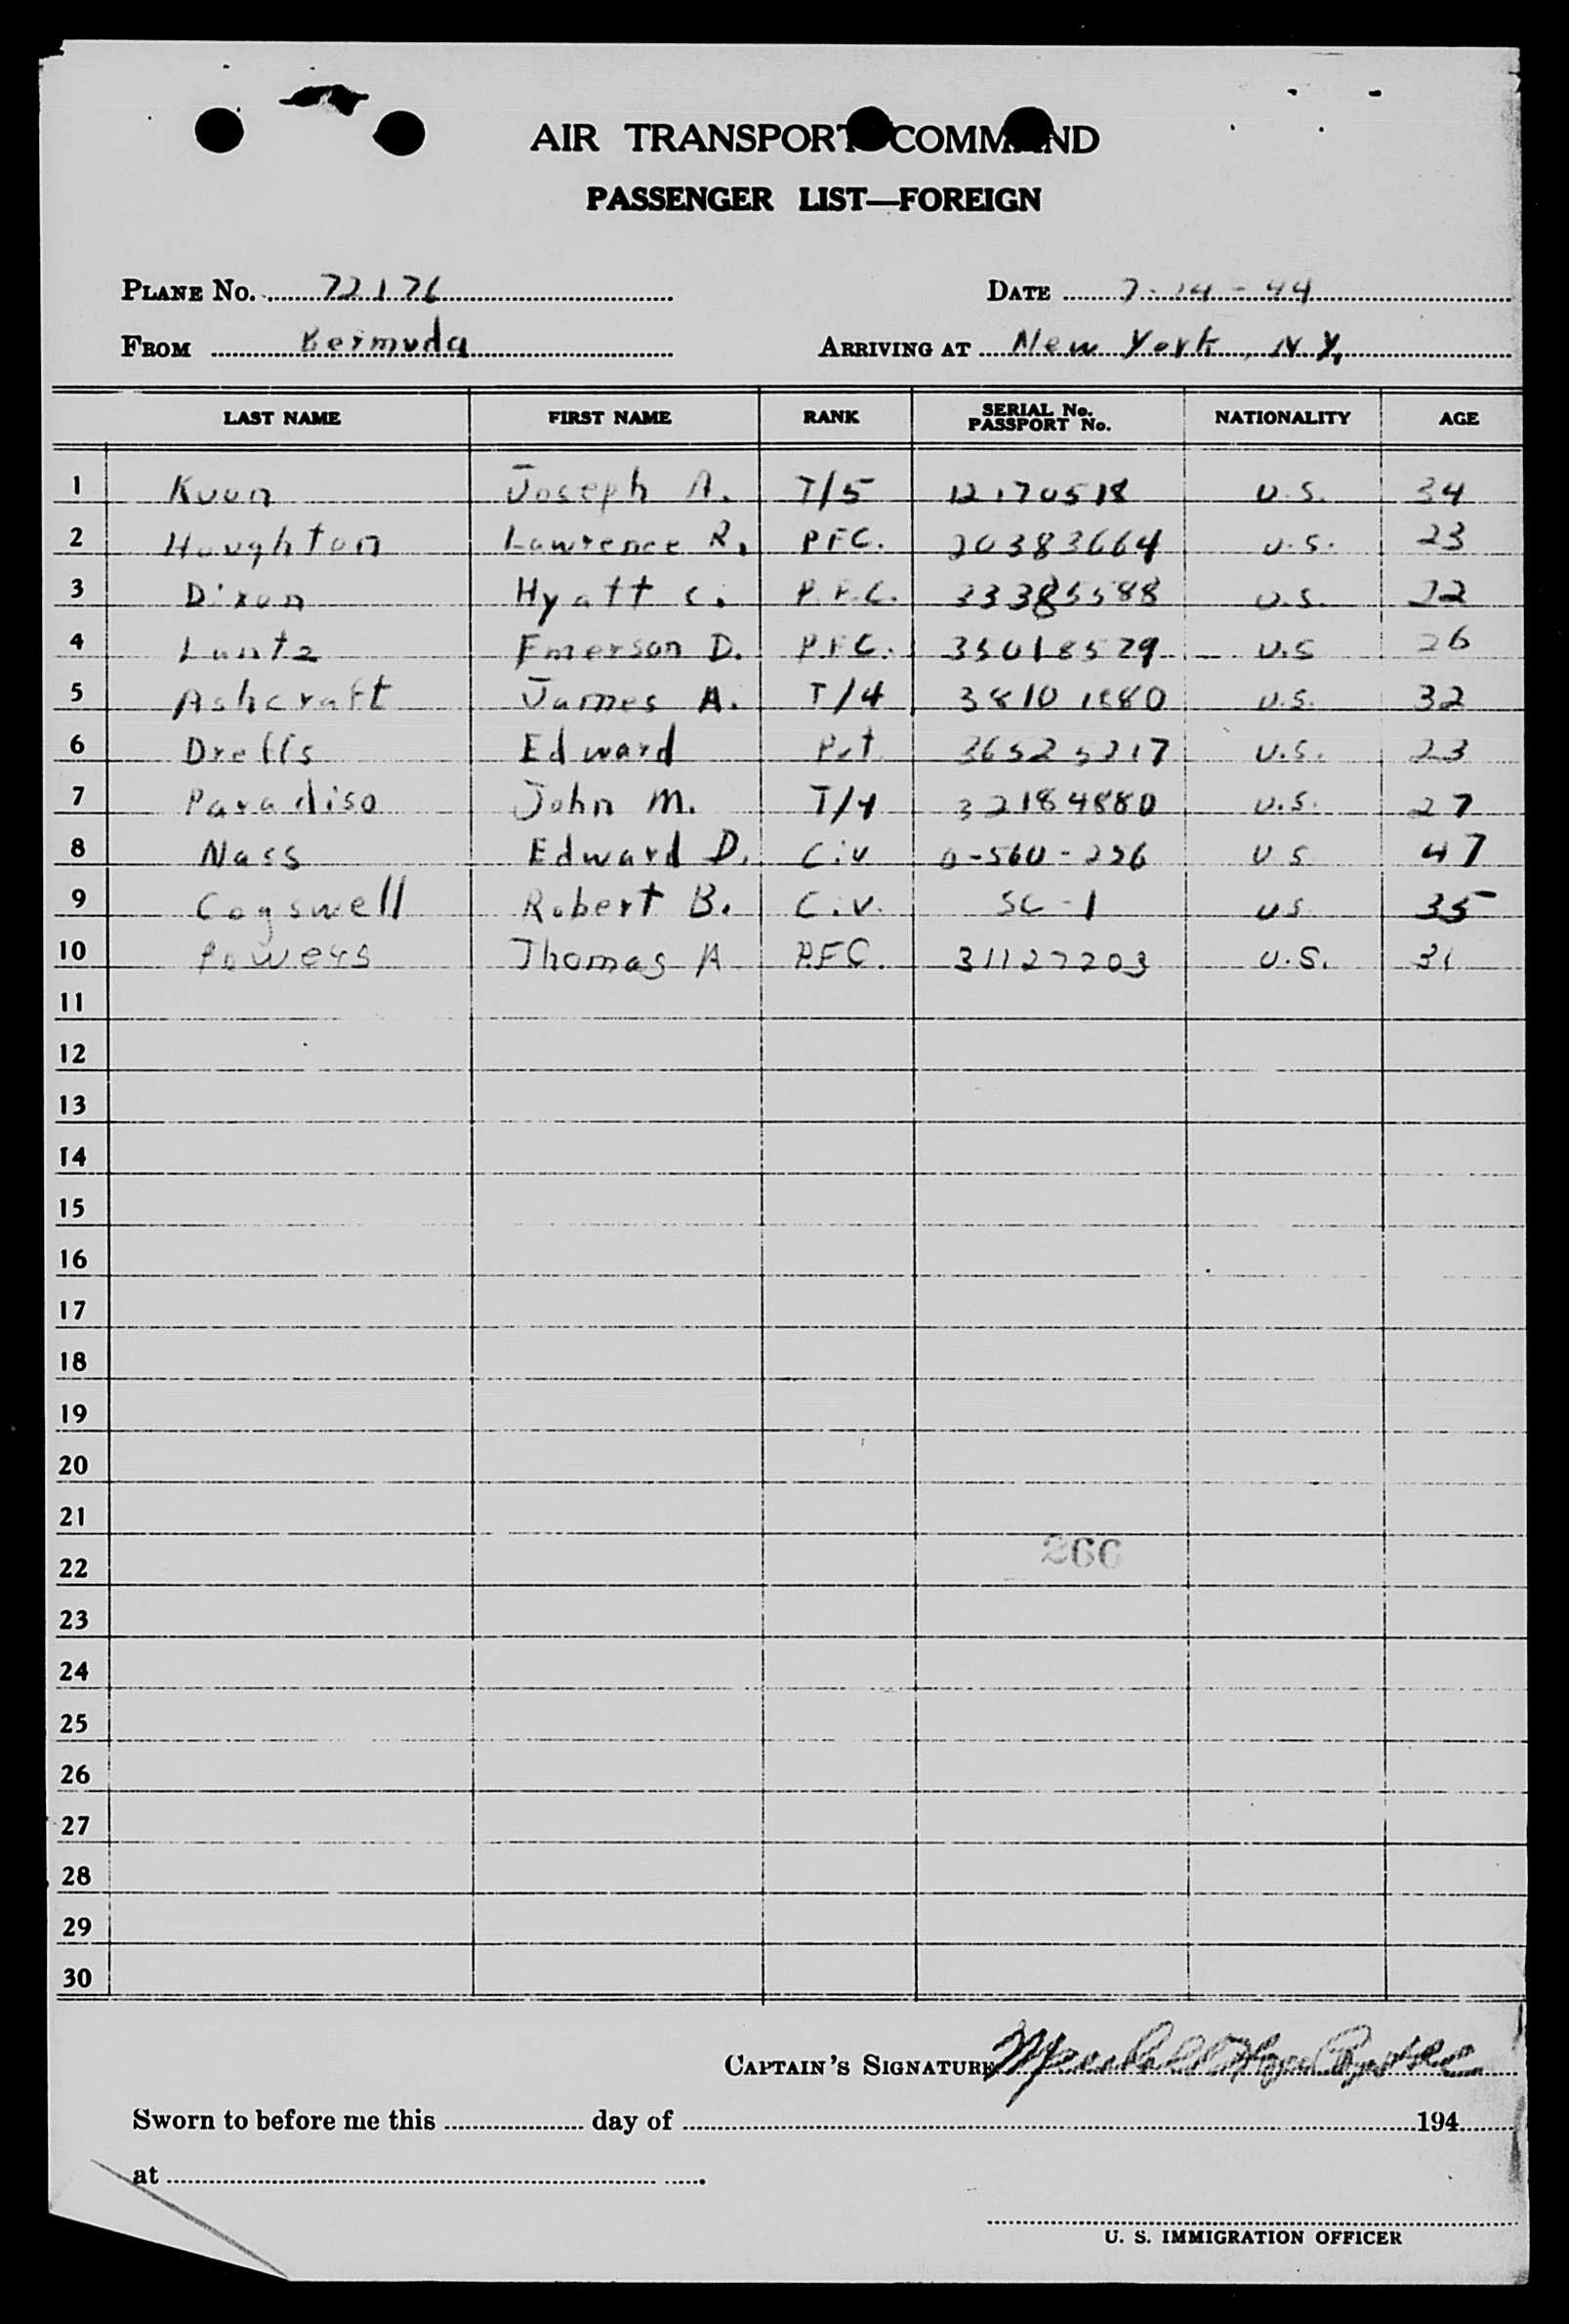 AIR TRANSPORT COMMAND
PASSENGER LIST—FOREIGN
PLANE No. 72176 DATE 7-14-44
FROM Bermuda ARRIVING AT New York, N.Y.
LAST NAME FIRST NAME RANK SERIAL No. PASSPORT No. NATIONALITY AGE
1 Kuon Joseph A. T/5 12170518 U.S. 34
2 Houghton Lawrence R. PFC. 20383664 U.S. 23
3 Dixon Hyatt C. P.F.C. 33385588 U.S. 22
4 Lantz Emerson D. P.F.C. 35018529 U.S 26
5 Ashcraft James A. T/4 38101880 U.S. 32
6 Edward Pvt 36525217 U.S. 23
7 Paradiso John M. T/4 32184880 U.S. 27
8 Nass Edward D. Civ 0-560-226 U S 47
9 Cogswell Robert B. Civ. SC-1 U S 35
10 Powers Thomas A P.F.C. 31127203 U.S. 31
11
12
13
14
15
16
17
18
19
20
21
266
22
23
24
25
26
27
28
29
30
CAPTAIN'S SIGNATURE
Sworn to before me this day of 194
at
U. S. IMMIGRATION OFFICER